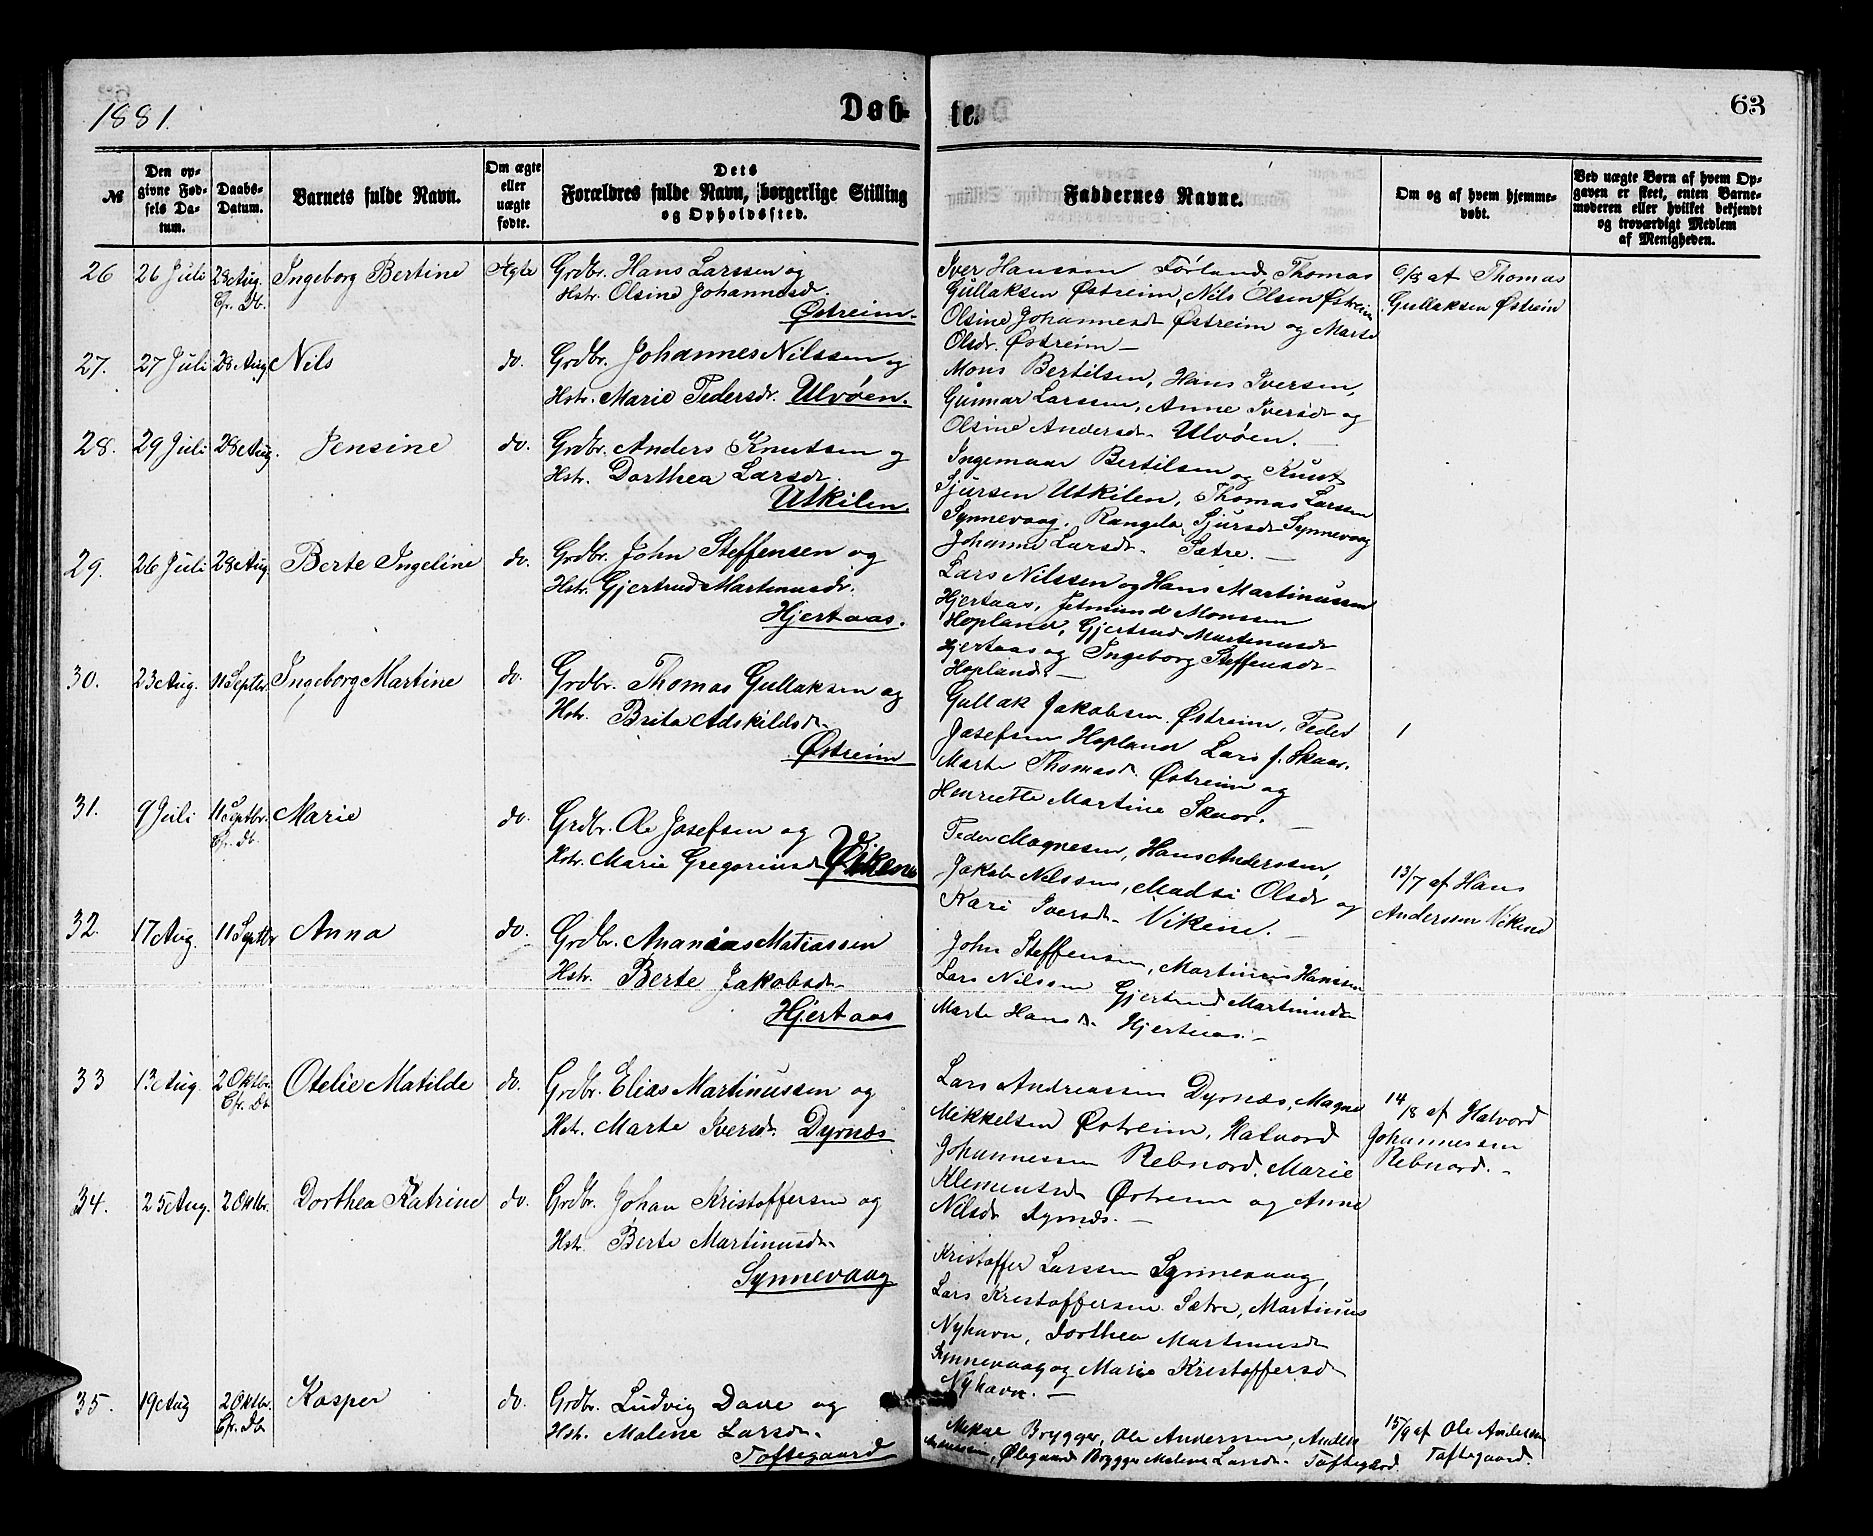 1881.
Døb-
te.
63
№
Den op-
givne Fød-
sels Da-
tum.
Daabs-
Datum.
Barnets fulde Navn.
Om ægte
eller
uægte
fødte.
Dets
Forældres fulde Navn, borgerlige Stilling
og Opholdssted.
Faddernes Navne.
Om og af hvem hjemme-
døbt.
Ved uægte Børn af hvem Op-
gaven er skeet, enten Barne-
moderen eller hvilket bekjendt
og troværdigt Medlem
af Menigheden.
26 26 Juli 28 Aug. Ingeborg Bertine Ægte Grdbr. Hans Larssen og
Cfr. Db.
Hstr. Olsine Johannesdr.
Østreim.
Iver Hanssen Førland, Thomas
Gullaksen Østreim, Nils Olsen Østreim
Olsine Johannesdr Østreim og Marte
Olsdr. Østreim —
6/8 af Thomas
Gullaksen Østreim
27. 27 Juli 28 Aug Nils do. Grdbr. Johannes Nilssen og
Hstr. Marie Pedersdr. Ulvøen.
Mons Bertilsen, Hans Iversen,
Gunnar Larssen, Anne Iversdr og
Olsine Andersdr. Ulvøen. —
28. 29 Juli 28 Aug. Jensine do. Grdbr. Anders Knutsen og
Hstr. Dorthea Larsdr.
Utkilen.
Ingemaar Bertilsen og Knut
Sjursen Utkilen, Thomas Larssen
Synnevaag, Rangela Sjursdr Synnevaag
Johanne Larsdr. Sætre. —
29. 26 Juli 28 Aug. Berte Ingeline do. Grdbr. John Steffensen og
Hstr. Gjertrud Martinusdr.
Hjertaas.
Lars Nilssen og Hans Martinussen
Hjertaas, Jetmund Monssen
Hopland, Gjertrud Martinusdr
Hjertaas og Ingeborg Steffensdr
Hopland. —
30. 23 Aug. 11 Septbr. Ingeborg Martine do. Grdbr. Thomas Gullaksen og
Hstr. Brita Adskildsdr.
Østreim
Gullak Jakobsen Østreim, Peder
Josefsen Hopland Lars J. Skaar,
Marte Thomasdr. Østreim og
Henriette Martine Skaar. —
31. 9 Juli 11 Septbr. Marie do. Grdbr. Ole Josefsen og
Cfr. Db.
Hstr. Marie Gregoriusdr Vikene
Peder Magnesen, Hans Anderssen,
Jakob Nilssen, Madsi Olsdr og
Kari Iversdr. Vikene. —
13/7 af Hans
Anderssen Vikene
32. 17 Aug. 11 Septbr Anna do. Grdbr. Ananias Matiassen
Hstr. Berte Jakobsdr.
Hjertaas
John Steffensen, Martinus Hanssen
Lars Nilssen Gjertrud Martinusdr
Marte Hansdr. Hjertaas. —
33 13 Aug. 2 Oktbr. Otelie Matilde do. Grdbr. Elias Martinussen og
Cfr. Db
Hstr. Marte Iversdr. Dyrnæs
Lars Andreassen Dyrnæs, Magne
Mikkelsen Østreim, Halvord
Johannessen Rebnord, Marie
Klemensdr Østreim og Anne
Nilsdr Dyrnæs. —
14/8 af Halvord
Johannessen
Rebnord. —
34. 25 Aug. 2 Oktbr. Dorthea Katrine do. Grdbr. Johan Kristoffersen og
Hstr. Berte Martinusdr.
Synnevaag
Kristoffer Larssen Synnevaag,
Lars Kristoffersen Sætre, Martinus
Nyhavn, Dorthea Martinusdr
Synnevaag og Marie Kristoffersdr
Nyhavn. —
35. 19 Aug 2 Oktbr. Kasper do. Grdbr. Ludvig Dave og
Cfr. Db
Hstr. Malene Larsdr.
Toftegaard
Brygger, Ole Anderssen, Anders
Ølegaard Brygger Malene Larsdr. Toftegård.
15/9 af Ole Anderssen
Toftegaard.